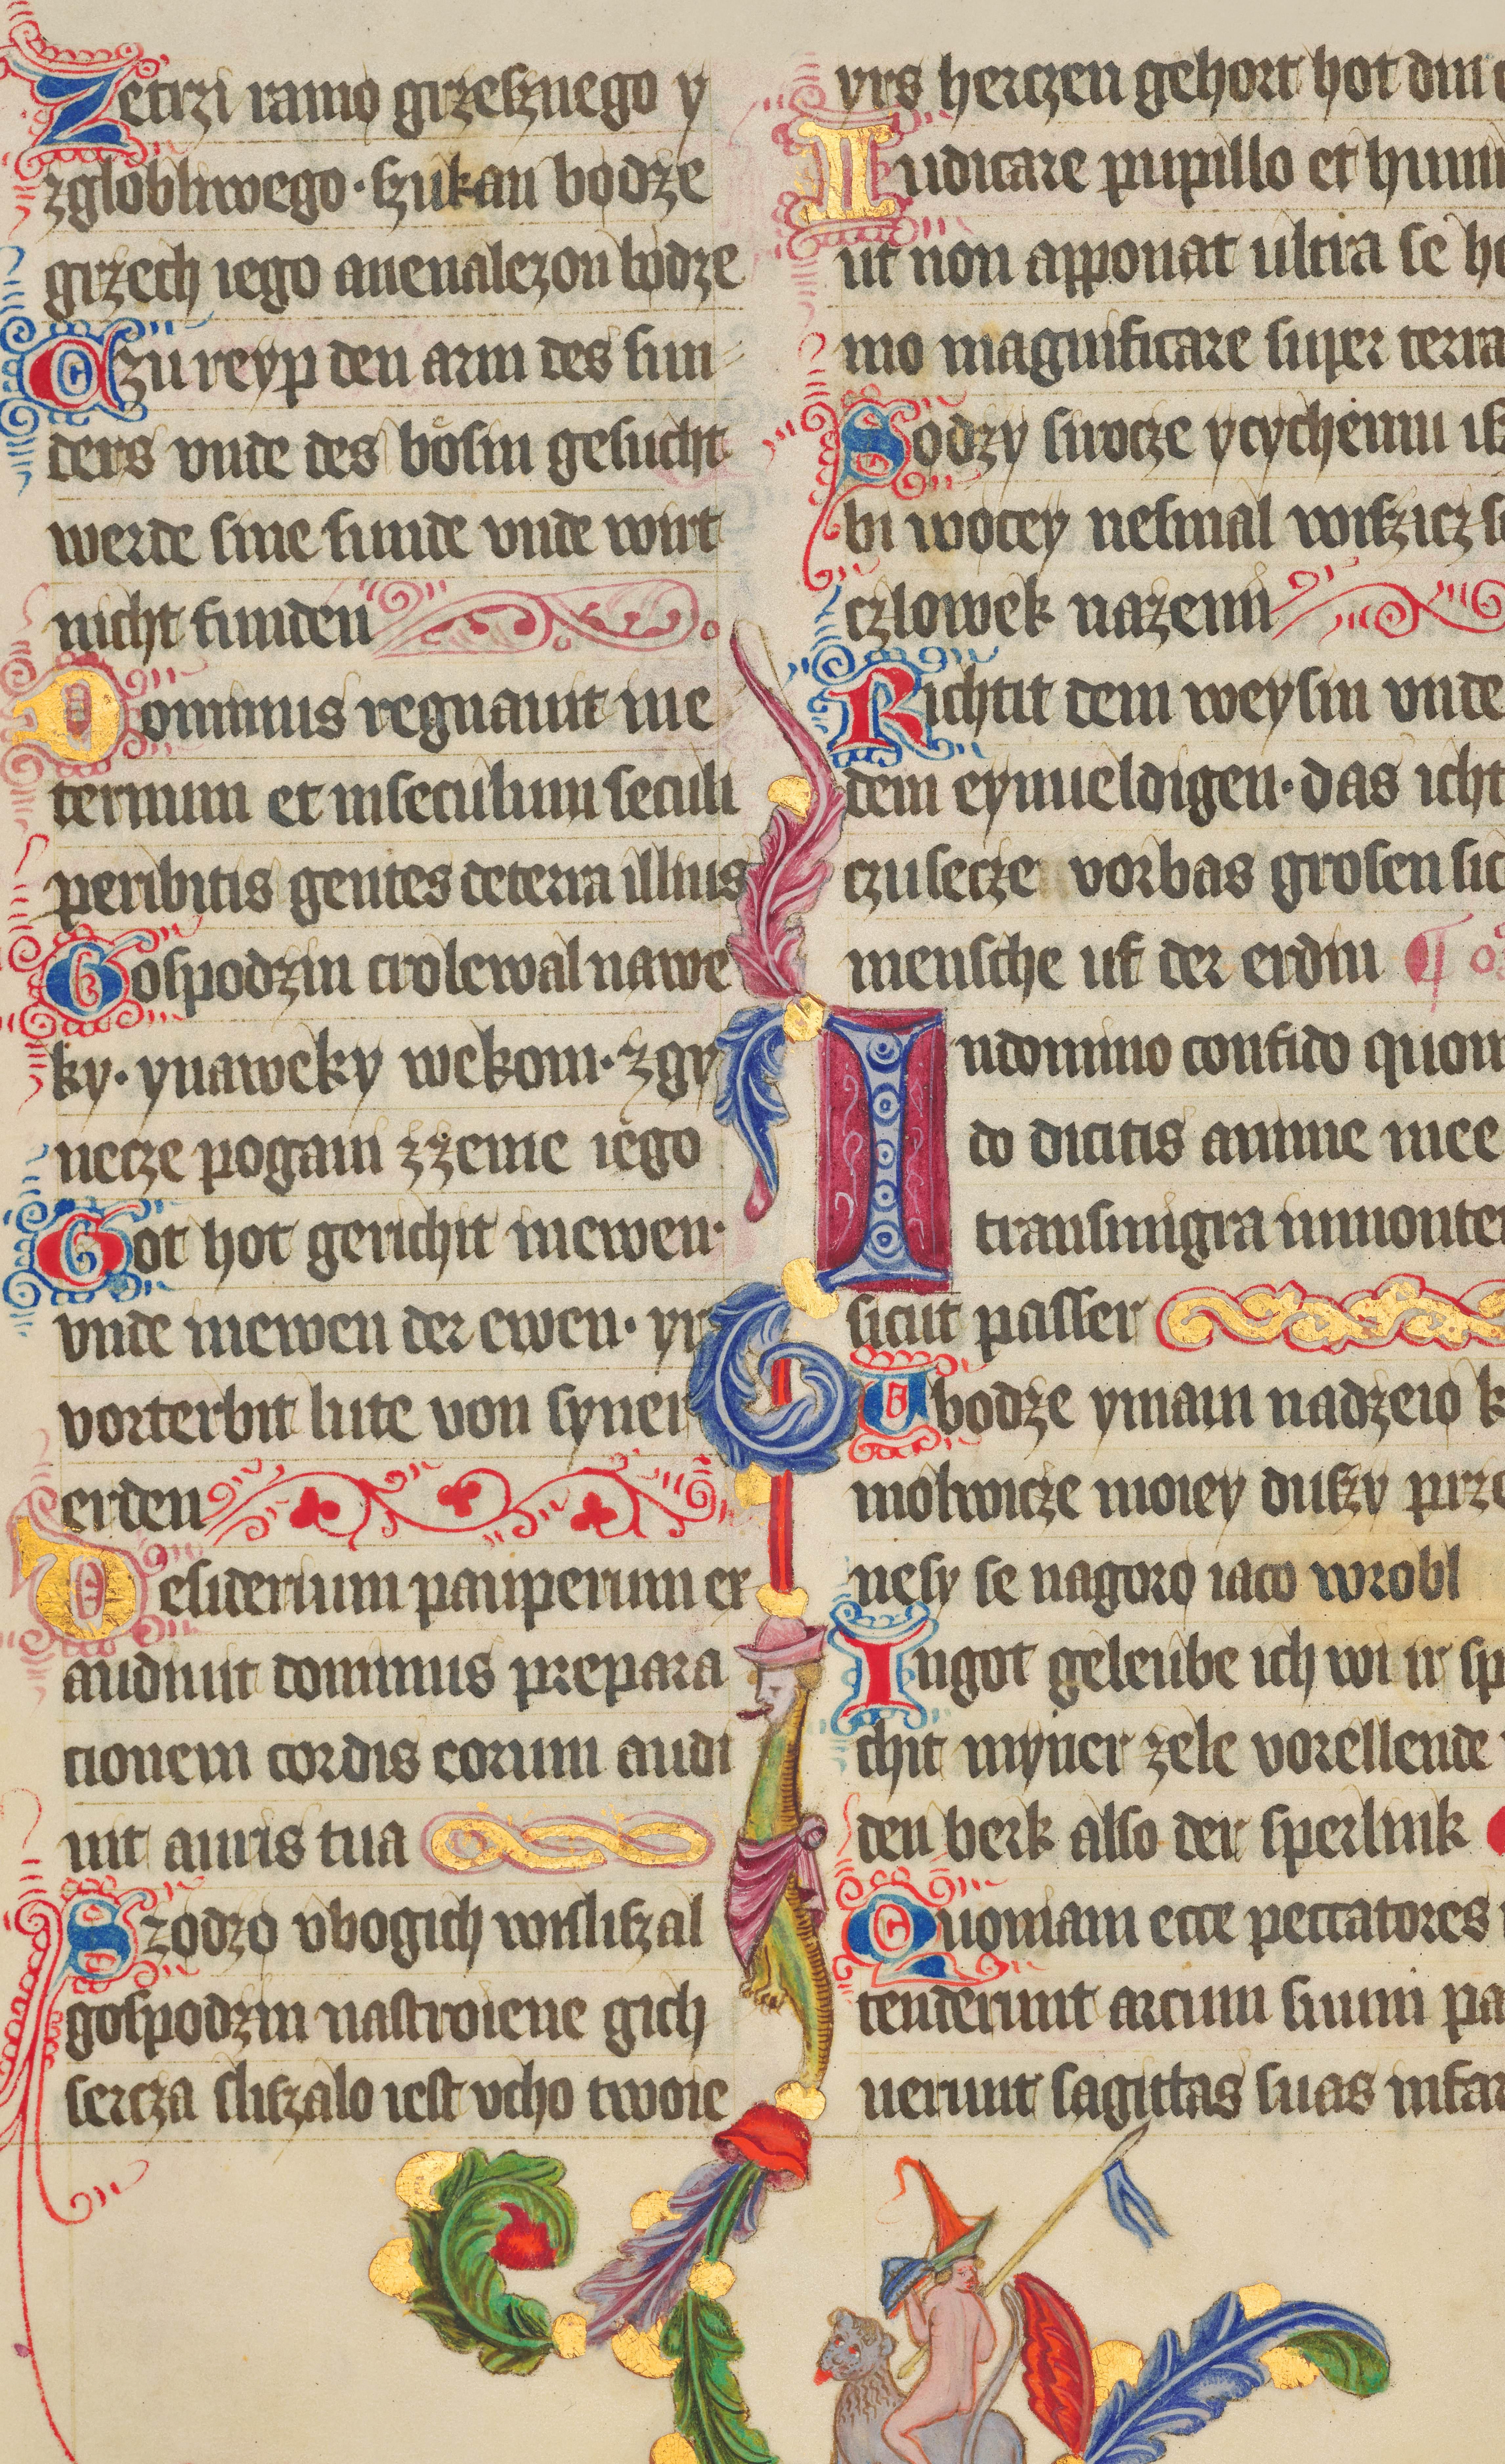 Zetrzi ramo grzesznego y
zglobliwego · szukan bodze
grzech iego anenalezon bodze
Czu reyp den arm des sun
ders vnde des bösin gesucht
werde sine sunde vnde wirt
nicht funden
Dominus regnauit ine
ternum et inseculum seculi
peribitis gentes deterra illius
Gospodzin crolewal nawe
ky · ynaweky wekom · zgy
necze pogani zzeme iego
Got hot gerichit inewen ·
vnde inewen der ewen · yr
vorterbit lute von syner
erden
Desiderium pauperum ex
audiuit dominus prepara
cionem cordis eorum audi
uit auris tua
Szodzo vbogich wisliszal
gospodzin nastroiene gich
sercza sliszalo iest vcho twoie
yrs herczen gehort hot din
Iudicare pupillo et humi
ut non apponat ultra se ho
mo magnificare super terra
Sodzy sirocze ycychemu isz
bi wocey nesmal wiszicz se
czlowek nazemi
Richtit dem weysin vnde
dem eynueldigen · das icht
czusecze vorbas grosen sic
mensche uf der erdin
Indomino confido quom
do dicitis anime mee
transmigra inmonte
sicut passer
Vbodze ymam nadzeio k
molwicze moiey duszy prze
nesy se nagoro iaco wrobl
Ingot geleube ich wi ir sp
chit myner zele vorellende
den berk also der sperlink
Quoniam ecce peccatores
tenderunt arcum suum pa
uerunt sagittas suas infar